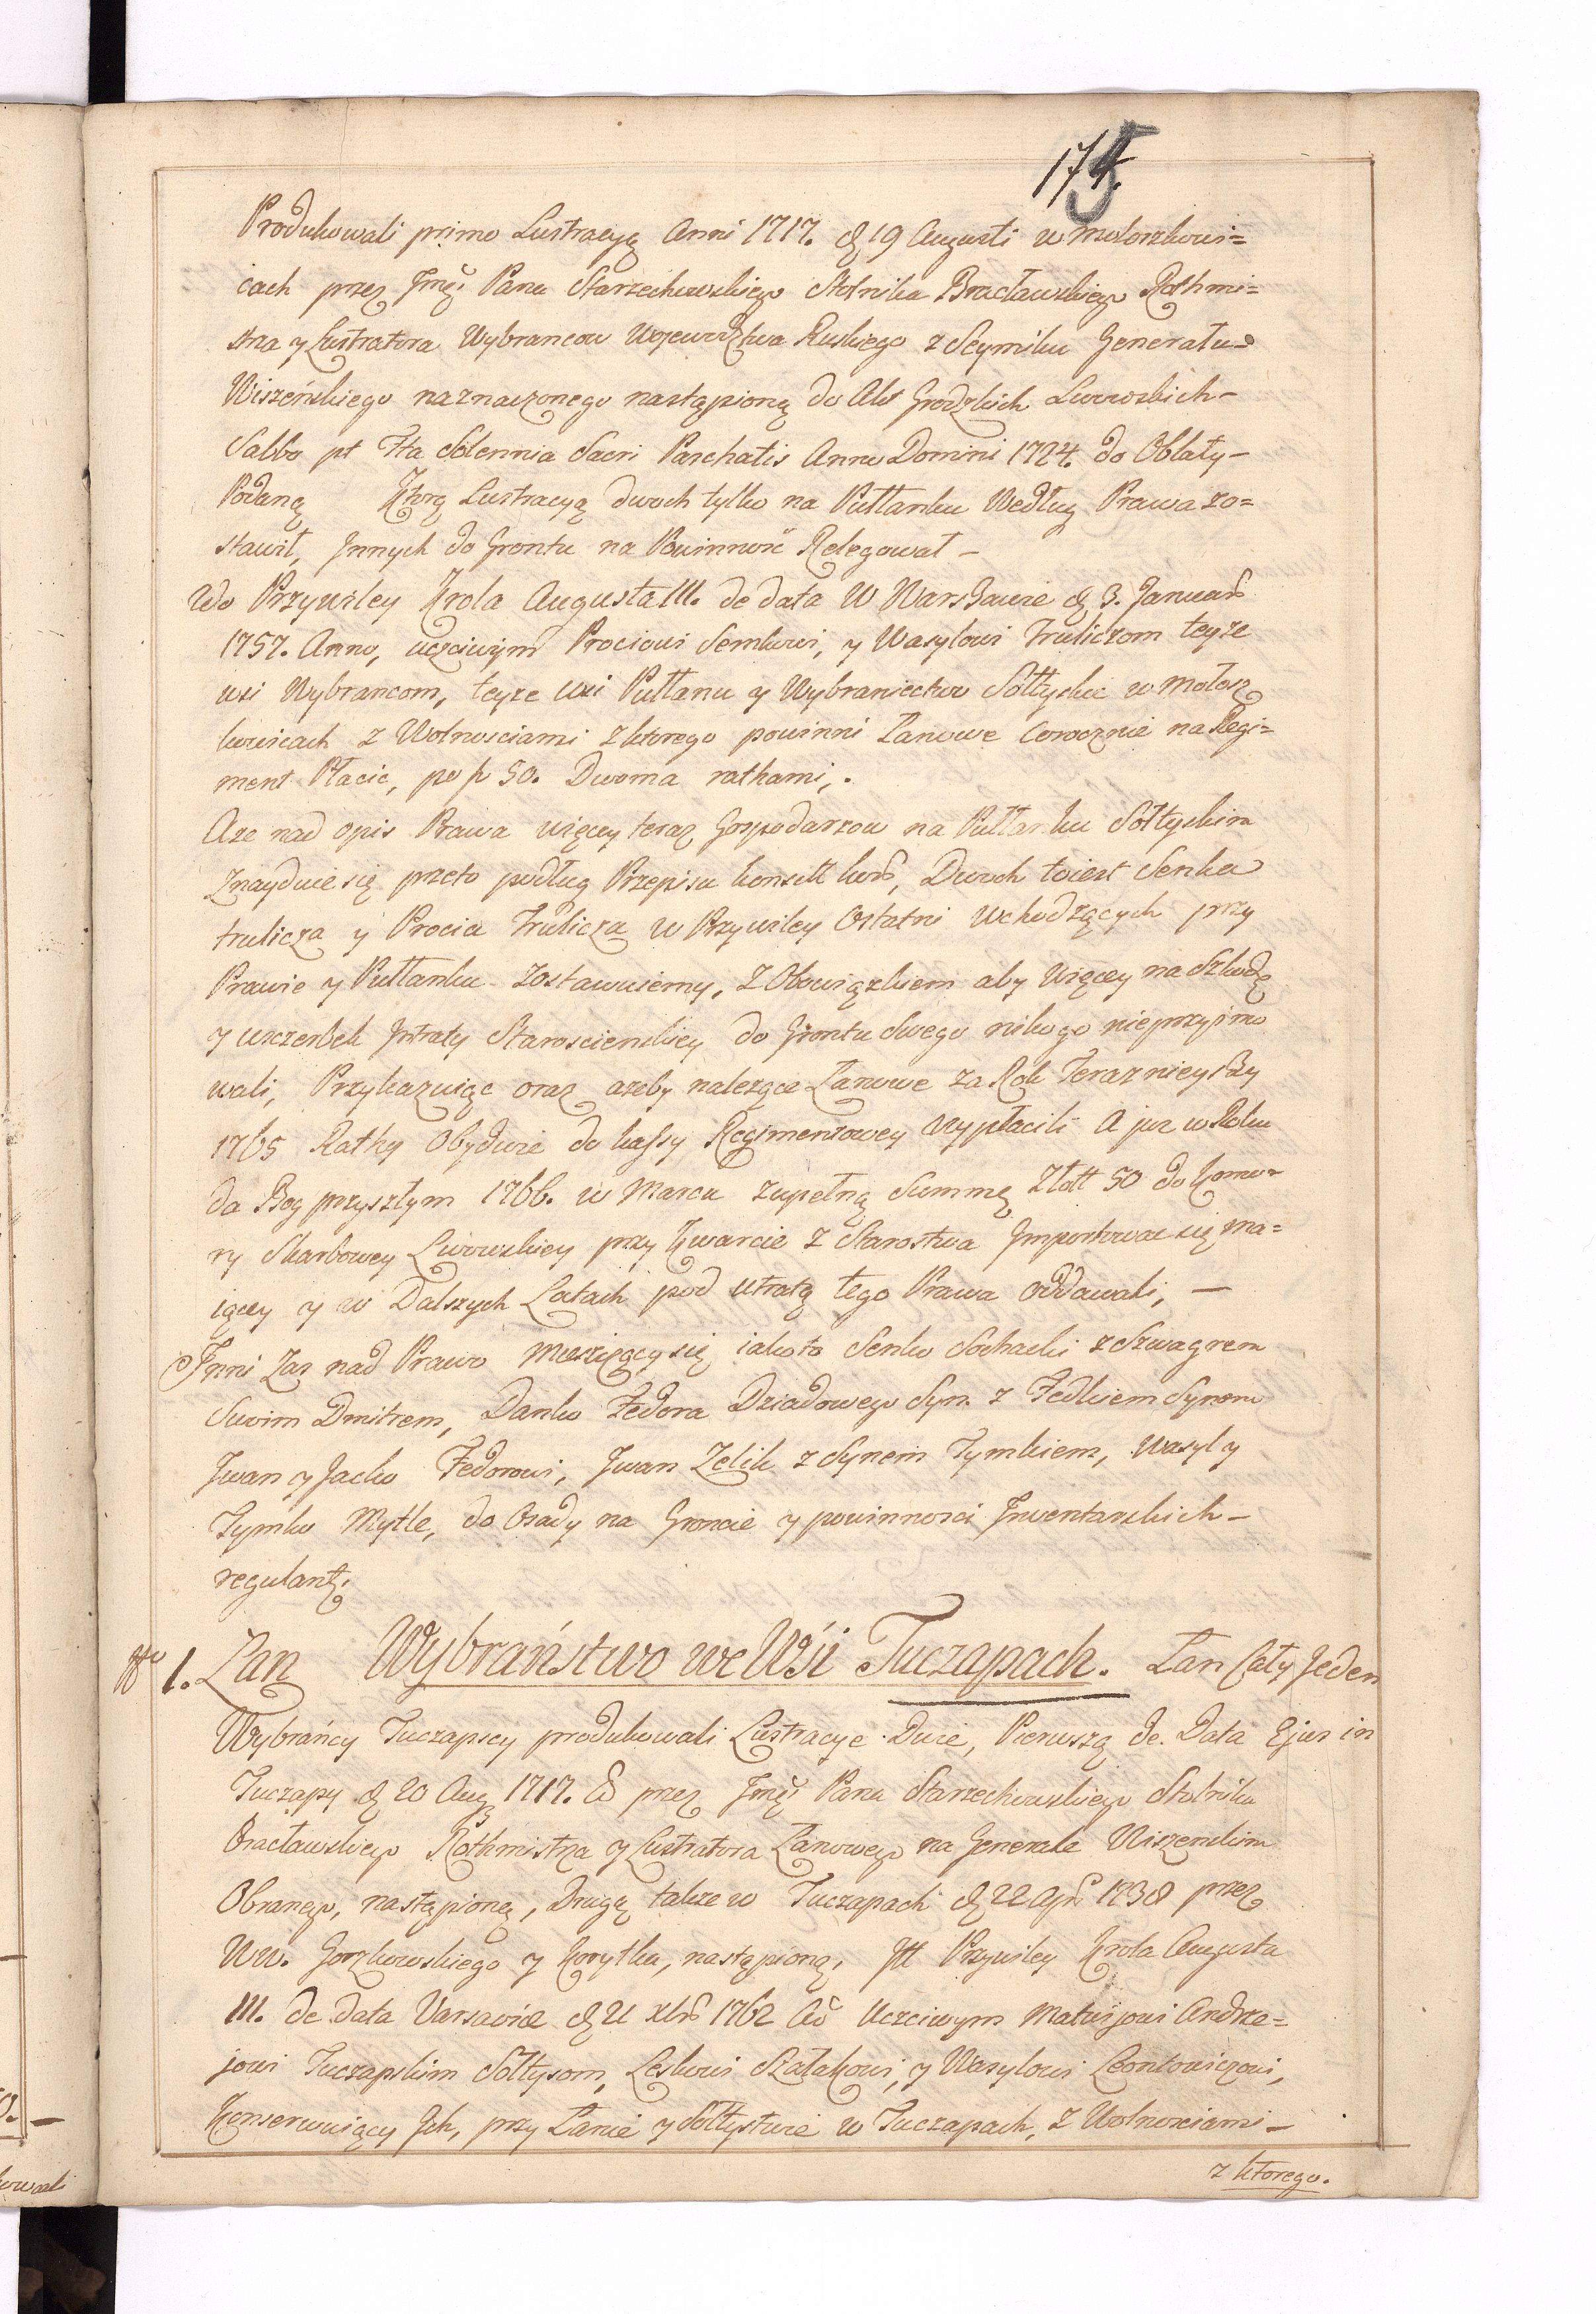 175.
Produkowali primo Lustracyą Anni 1717. d 19 Augusti w Mołoszkowi=
cach przez Jmci Pana Starzechowskiego Stolnika Bracławskiego Rothmi=
strza y Lustratora Wybrancow Wojewodztwa Ruskiego z Seymiku Generału
Wiszeńskiego naznaczonego nastąpioną do Akt Grodzkich Lwowskich-
Sabbo pt Fta Solennia Sacri Paschatis Anno Domini 1724. do Oblaty-
Podaną Ktorą Lustracyą dwoch tylko na Pułłanku Według Prawa zo=
stawił, Jnnych do Gruntu na Powinność Relegował -
2do Przywiley Krola Augusta III. de data W Warszawie d 3. Januar
1757. Anno, uczciwym Prociowi Semkowi, y Wasylowi Truliczom teyze
wsi Wybrancom, teyze wsi Pułłanu y Wybraniectwo Sołtyskie w Mołosz
kowicach z Wolnosciami z ktorego powinni Łanowe Corocznie na Regi=
ment Płacić, po f 50. Dwoma rathami,.
Aze nad opis Prawa więcey teraz Gospodarzow na Pułłanku Sołtyskim
znayduie się przeto podług Przepisu konstt , Dwoch toiest Senka
trulicza y Procia Trulicza w Przywiley Ostatni Wchodzących przy
Prawie y Pułłanku zostawuiemy, Z Obowiązkiem aby Więcey na Szkodę
y uszczerbek Jntraty Starościenskiey do Gruntu Swego nikogo nieprzyimo
wali, Przykazuiąc oraz azeby nalezące Łanowe za Rok Teraznieyszy
1765 Rathy Obydwie do kassy Regimentowey Wypłacili A juz w Roku
da Bog przyszłym 1766. w Marcu zupełną Summę Złott 50 do Komo=
ry Skarbowey Lwowskiey przy Kwarcie z Starostwa Jmportować się ma=
iącey y w Dalszych Latach pod utratą tego Prawa oddawali, -
Jnni Zas nad Prawo Mieszczący się iakoto Senko Sochacki z Szwagrem
Swoim Dmitrem, Danko Fedora Dziadowego Syn z Fedkiem Synem
Jwan y Jacko Fedorowi, Jwan Zelik z Synem Tymkiem, Wasyl y
Tymko Mytle, do Osady na Groncie y powinnosci Jnwentarskich-
regulant.
No 1. Łan Wybraństwo we Wsi Tuczapach. Łan Cały Jeden
Wybrańcy Tuczapscy produkowali Lustracye Dwie, Pierwszą de Data Ejus in
Tuczapy d 20 Aug 1717. Ao przez Jmci Pana Starzechowskiego Stolnika
Bracławskiego Rothmistrza y Lustratora Łanowego na Generale Wiszenskim
Obranego, nastąpioną, Drugą takze w Tuczapach d 22 1738 przez
WW. Gorzkowskiego y Korytka, nastąpioną, Jtt Przywiley Krola Augusta
III. de data Varsaviæ d 21 xbr 1762 Ao Uczciwym Matwijowi Andrze=
jowi Tuczapskim Sołtysom, Leskowi Szałakowi, y Wasylowi Leontowiczowi,
Konserwuiący Jch, przy Łanie y Sołtystwie w Tuczapach, z Wolnosciami-
z ktorego.